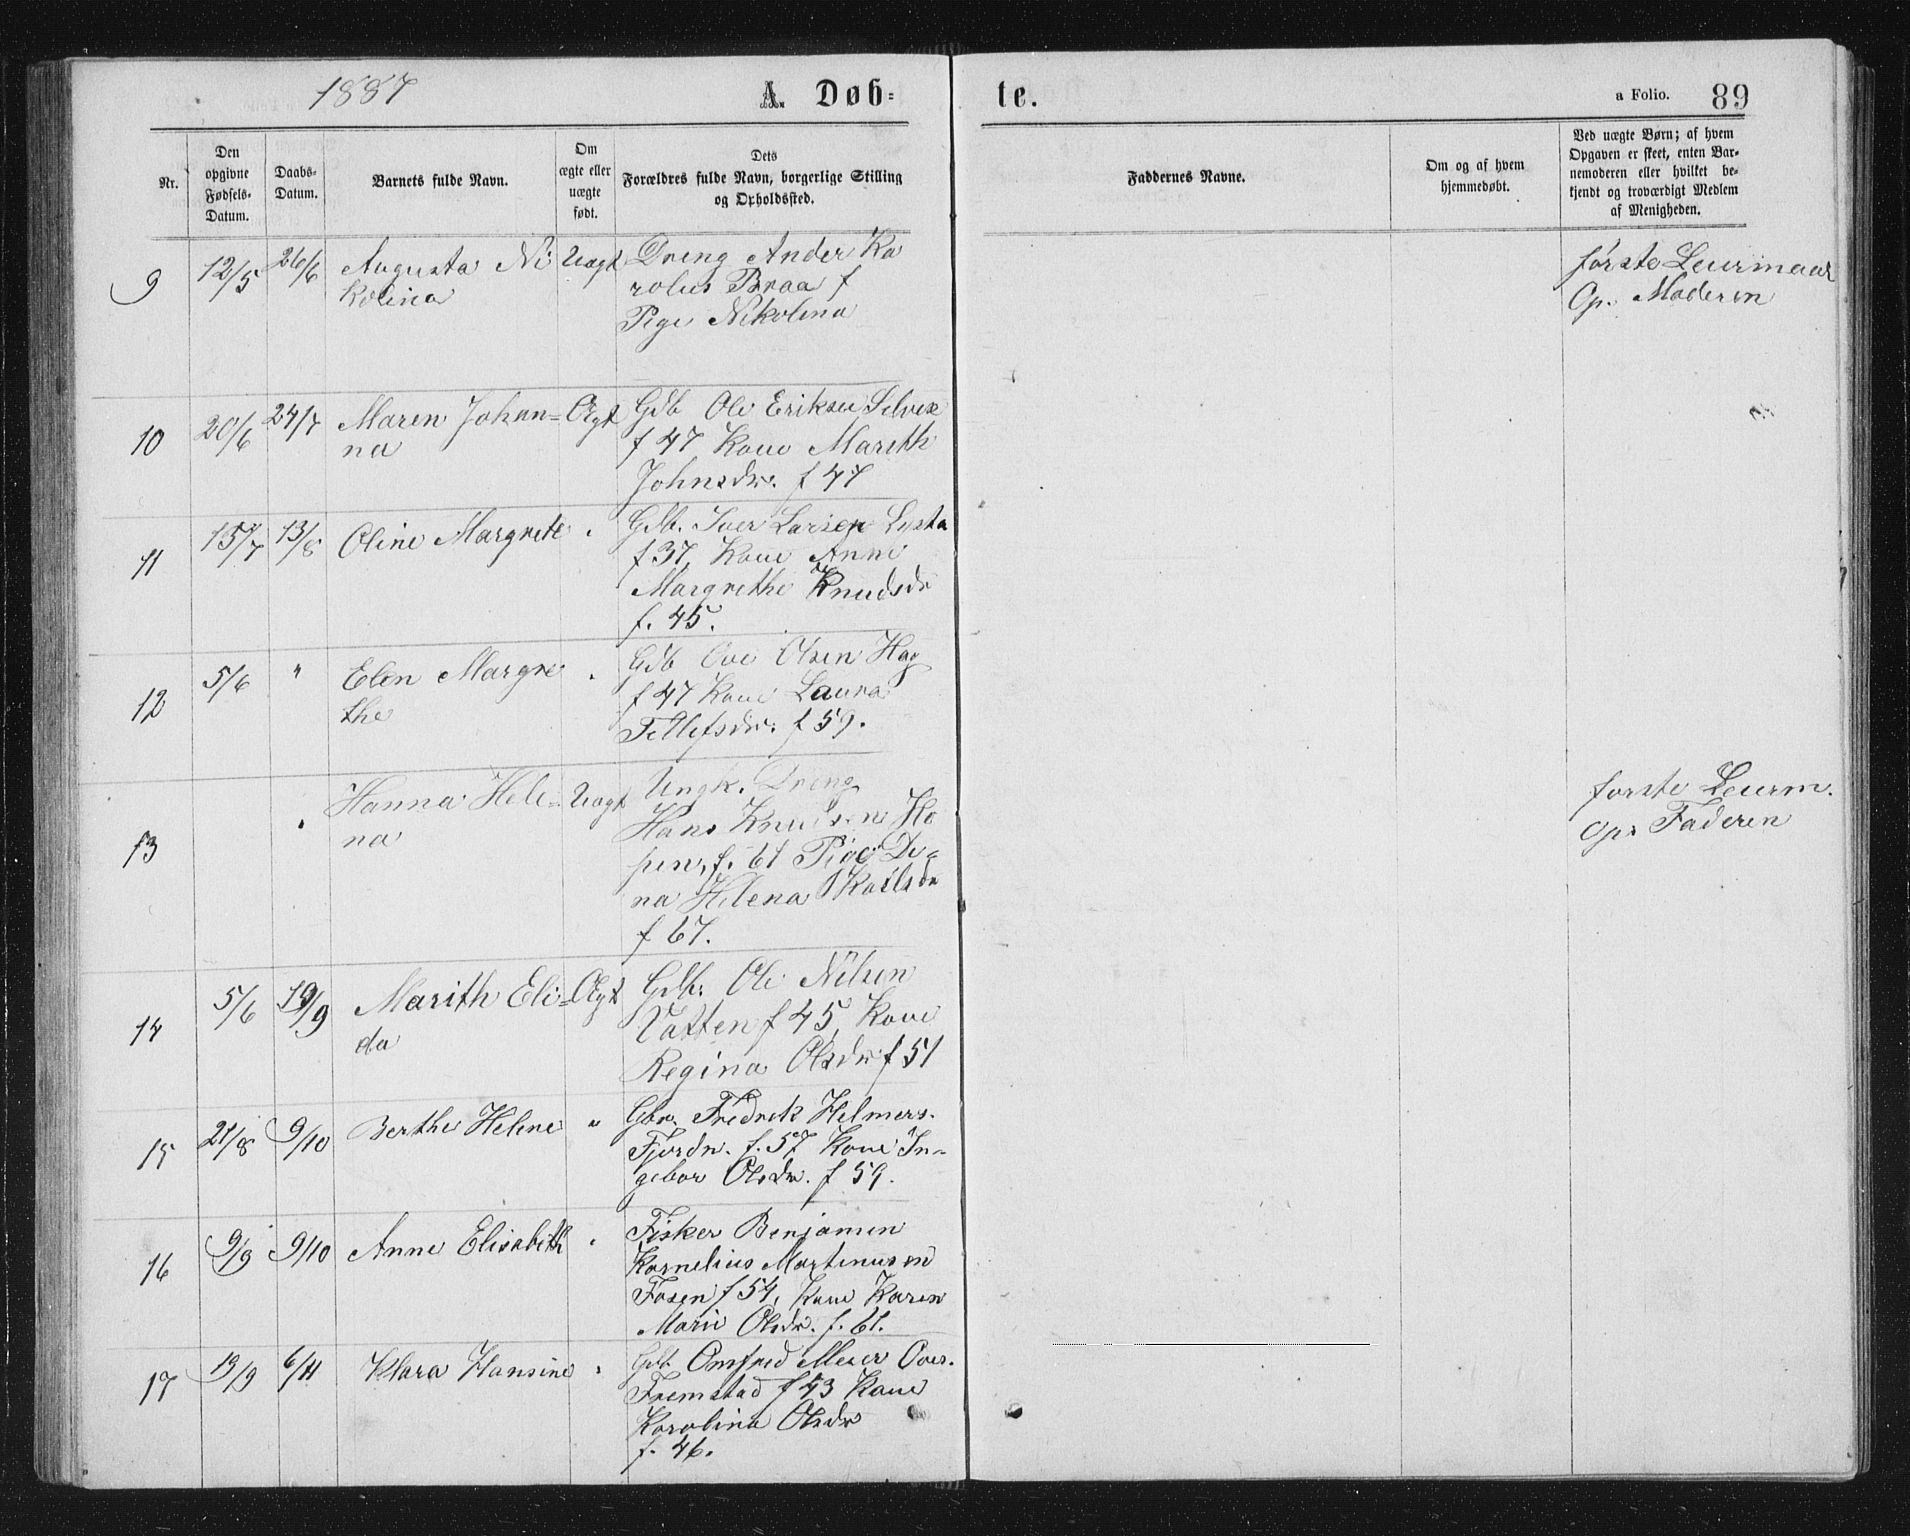 1887
A. Døb-
te.
a Folio. 89
Nr.
Den
opgivne
Fødsels-
Datum.
Daabs-
Datum.
Barnets fulde Navn.
Om
ægte eller
uægte
født.
Dets
Forældres fulde Navn, borgerlige Stilling
og Opholdssted.
Faddernes Navne.
Om og af hvem
hjemmedøbt.
Ved uægte Børn; af hvem
Opgaven er skeet, enten Bar-
nemoderen eller hvilket be-
kjendt og troværdigt Medlem
af Menigheden.
9 12/5 26/6 Augusta Ni Uægt Dreng Ander Ka
Kolina rolus Braa f
Pige Nikolina
første Leiermaal
Op. Moderen
10 20/6 24/7 Maren Johan= Ægt Gdb Ole Eriksen
na f 47 Kone Marith
Johnsdr. f 47
11 15/7 13/8 Oline Margrete . Gdb. Iver Larsen Lysta
f 37, Kone Anne
Margrethe Knudsdr
f. 45.
12 5/6 " Elen Margre . Gdb Ove Olsen Hag
the f 47 Kone Laura
Tellefsdr. f 59.
13 Hanna Hele= Uægt Ungk. Dreng
na Hans Knudsen Ho
pen, f. 61 Pige De=
na Helena Karlsdr
f 67.
første Leierm.
Op. Faderen
14 5/6 19/9 Marith Eli= Ægt Gdb. Ole Nilsen
da Vatten f 45, Kone
Regina Olsdr f 51
15 21/8 9/10 Berthe Helene " Gbr. Fredrik Helmers.
Fjordn. f. 57 Kone In=
gebor Olsdr. f 59.
16 9/9 9/10 Anne Elisabeth . Fisker Benjamin
Kornelius Martinussen
Fosen f 54, Kone Karen
Marie Olsdr. f. 61.
17 19/9 6/11 Klara Hansine . Gdb Onsfred Meier Over.
Fremstad f 43 Kone
Karolina Olsdr
f. 46.